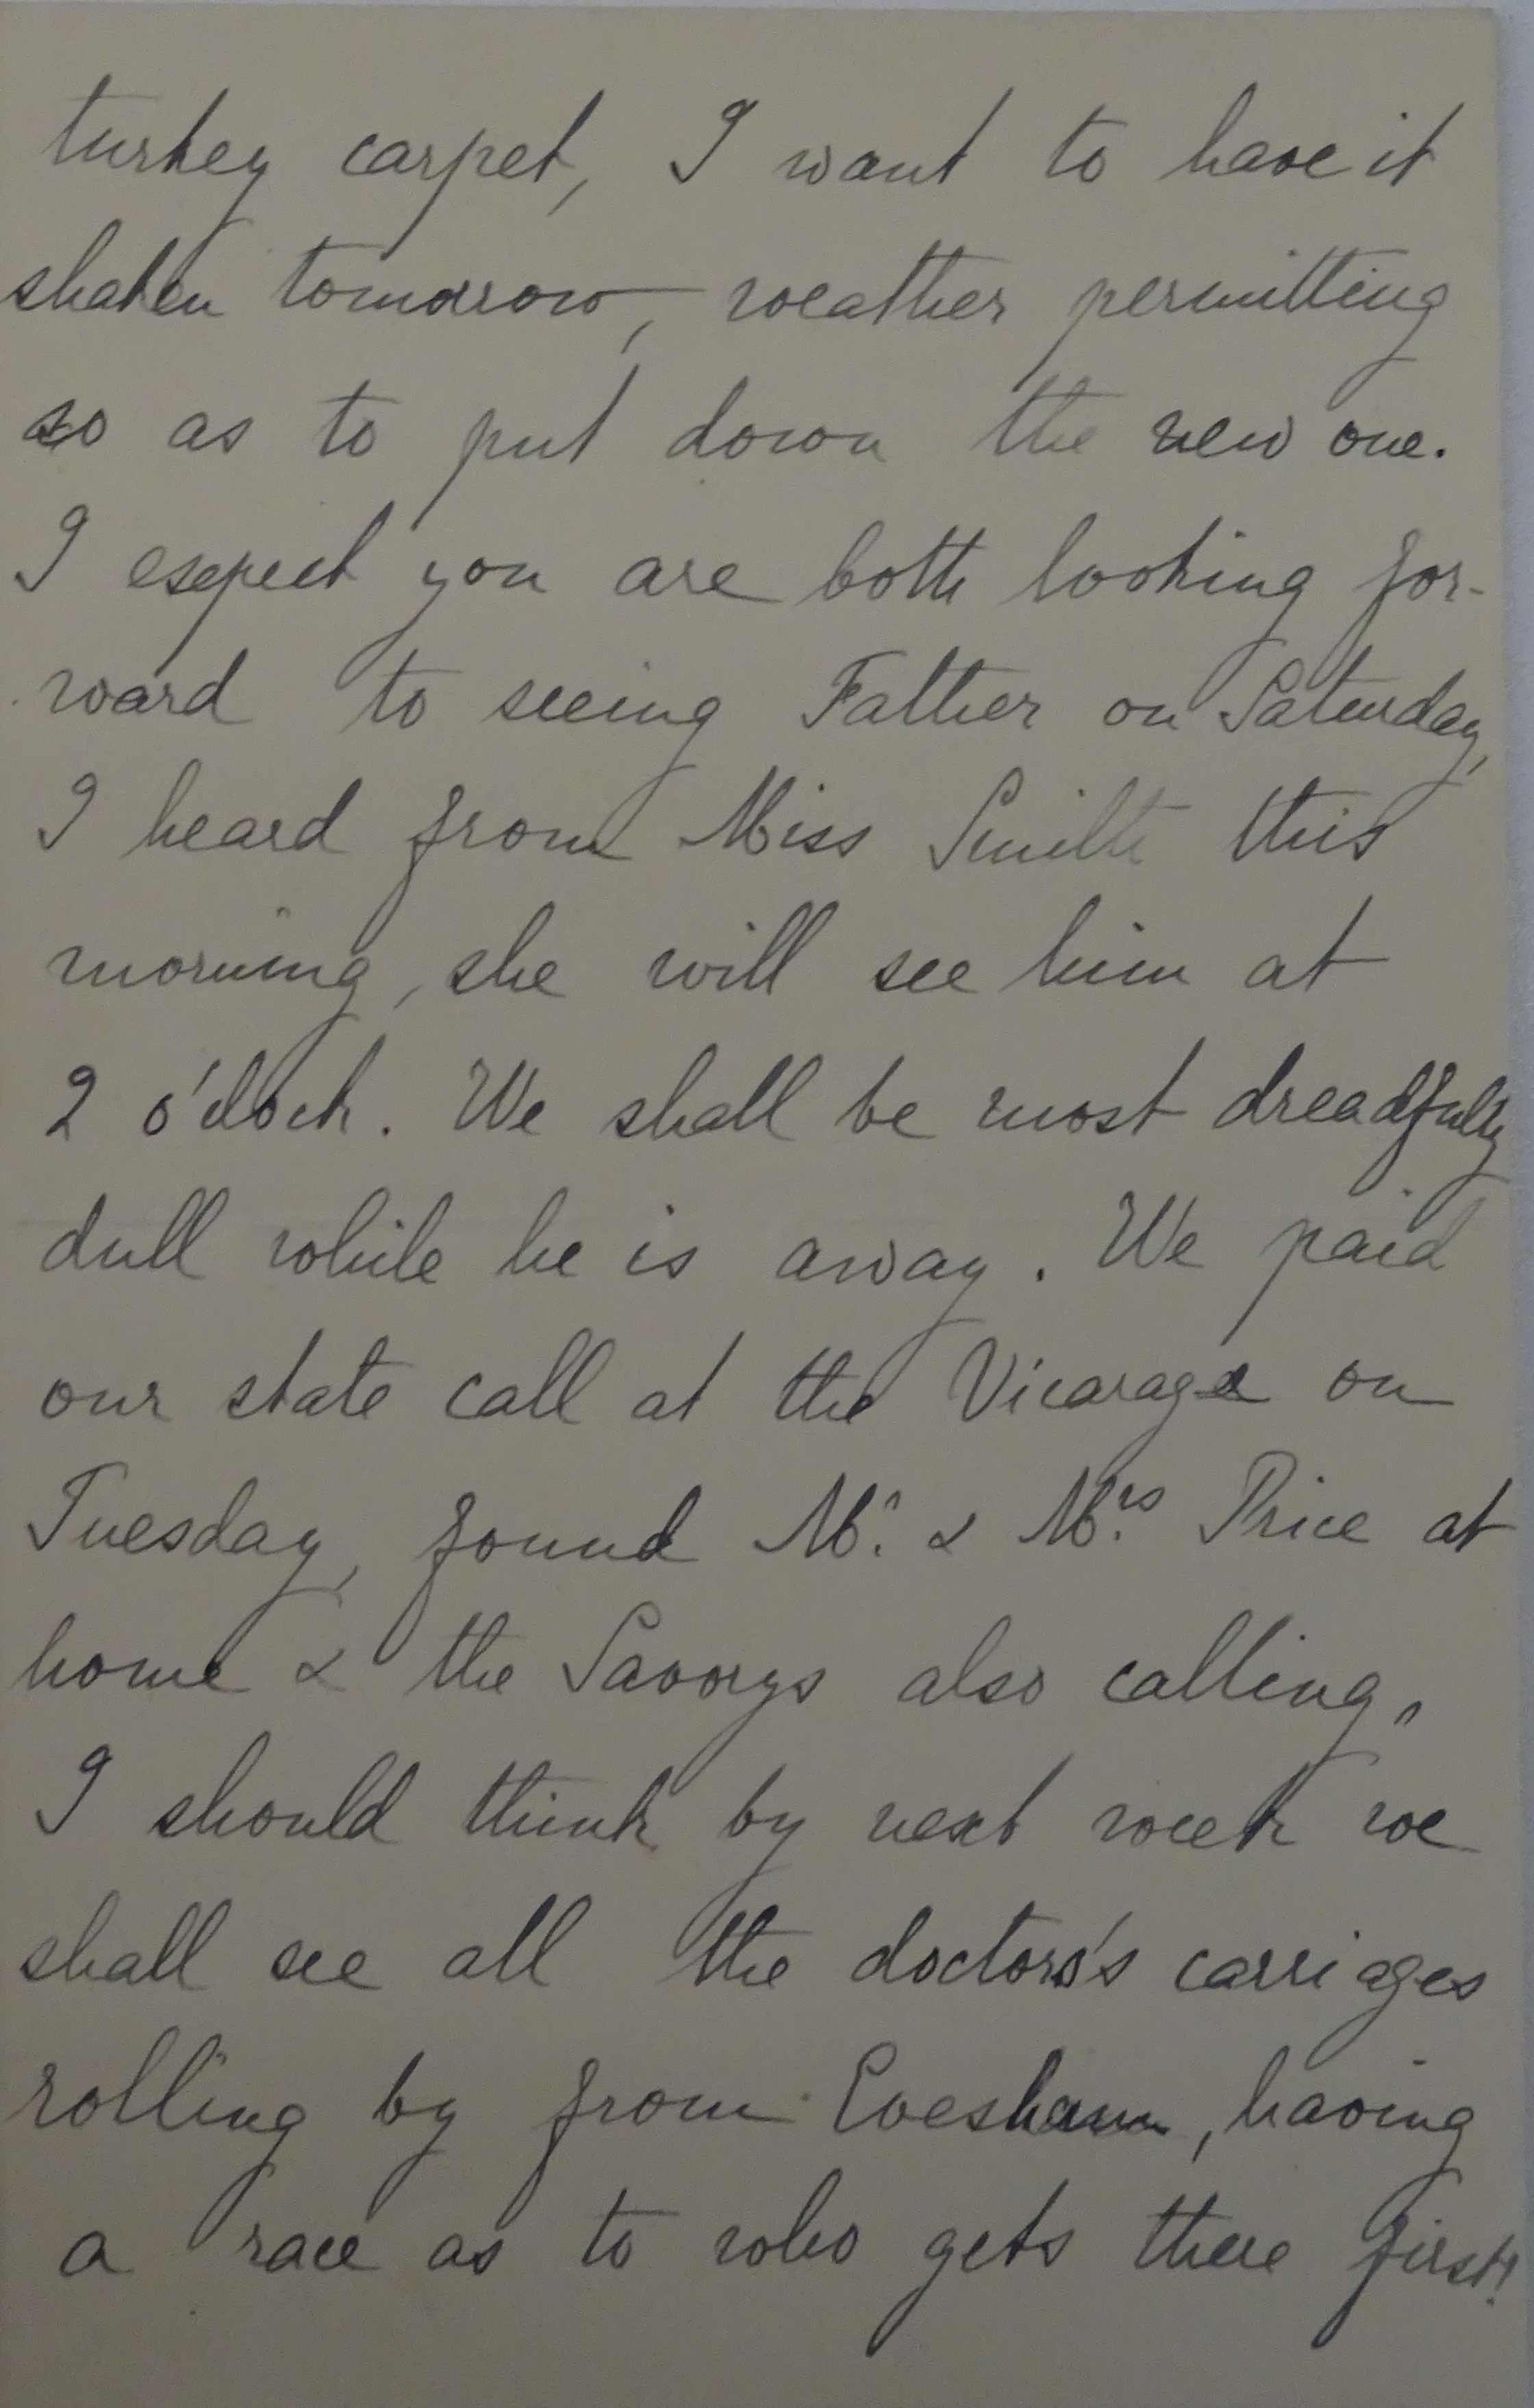 turkey carpet, I want to have it
shaken tomorrow, weather permitting
so as to put down the new one.
I expect you are both looking for-
ward to seeing Father on Saturday,
I heard from Miss Smith this
morning, she will see him at
2 o'clock. We shall be most dreadfully
dull while he is away. We paid
our state call at the Vicarage on
Tuesday, found Mr. & Mrs. Price at
home & the Savorys also calling,
I should think by next week we
shall see all the doctors's carriages
rolling by from Evesham, having
a race as to who gets there first!